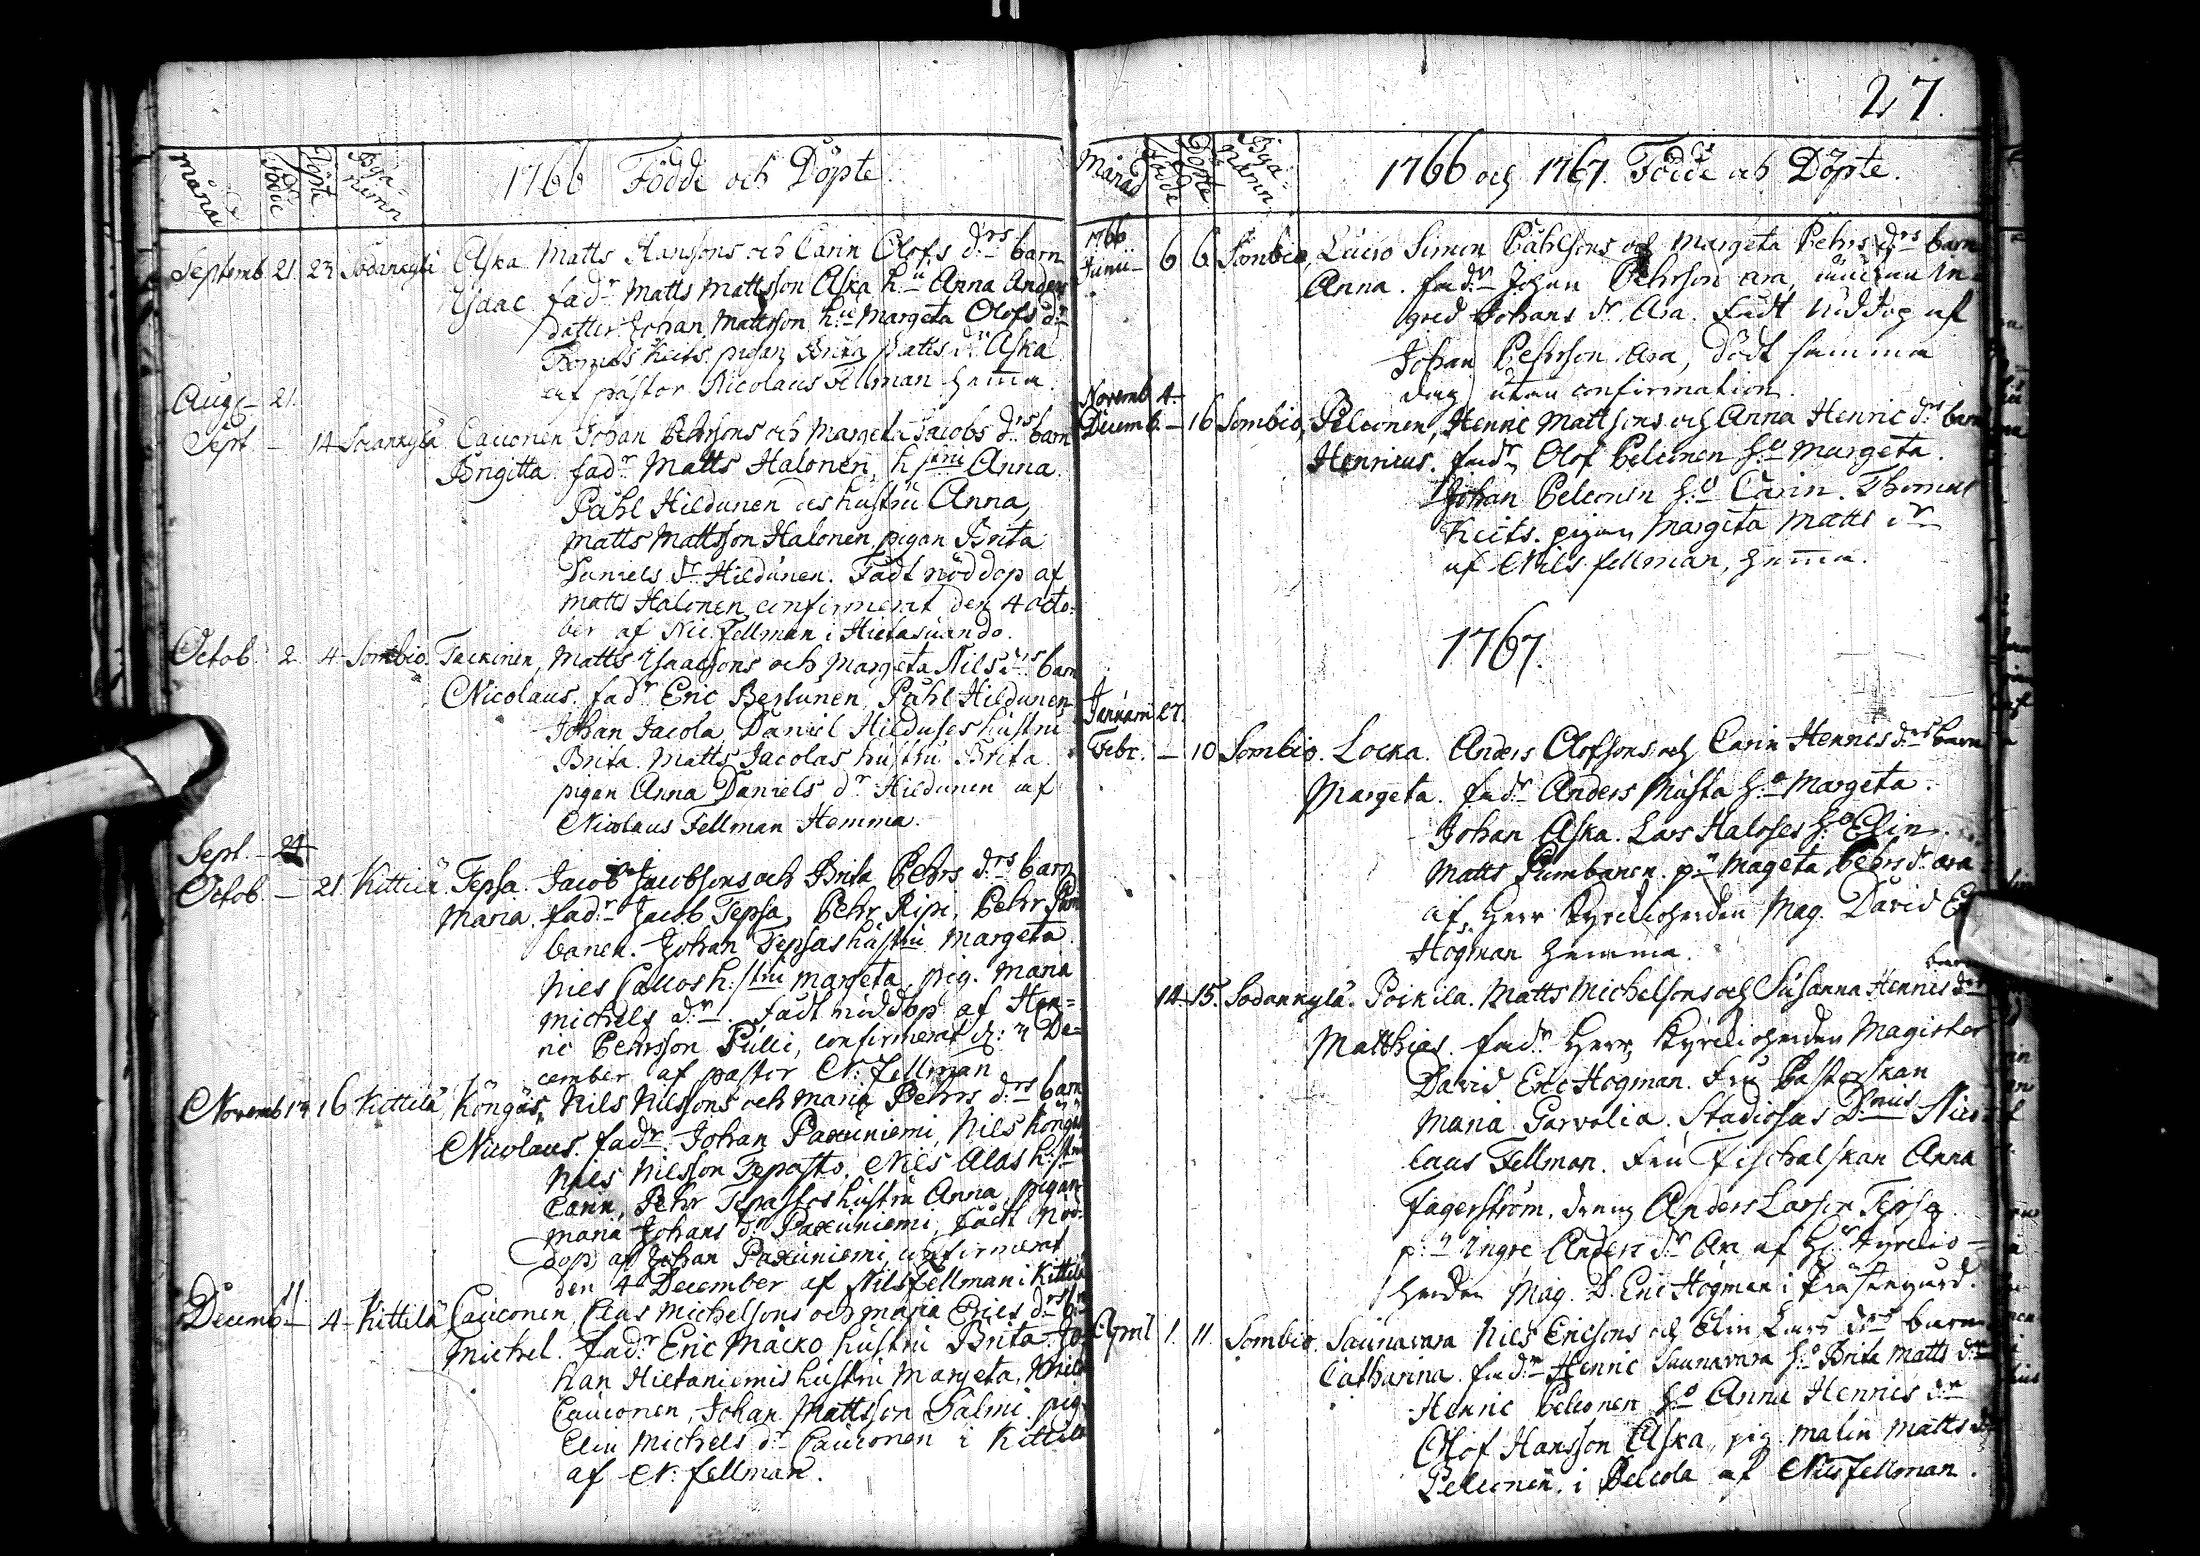 Månad Födde Döpte Byanamn 1766 Födde och Döpte.
Septemb. 21. 23. Sodankylä Aska Matts Hansons och Carin Olofs d:rs barn
Ysaac. fad:r Matts Mattsson Aska h:u Anna Anders
datter Johan Mattsson h:u Margeta Olofs d:r
Thomas Keits pigan Brita Matts d:r Aska
af pastor Nicolaus Fellman hemma.
Aug. 21.
Sept. — 14 Sodankylä Cauonen Johan Pehrsons och Margeta Jacobs d:rs barn
Brigitta. fad:r Matts Halonen, hstru Anna.
Påhl Hildunen des hustru Anna,
Matts Mattsson Halonen, pigan Brita
Daniels d:r Hildunen. Fådt nöddop af
Matts Halonen confirmerat den 4 octo-
ber af Nic. Fellman i Hietasuando.
Octob. 2. 4 Sombio. Tackinen, Matts Ysaacsons och Margeta Nils d:rs barn
Nicolaus. fad:r Eric Berlunen, Påhl Hildunen
Johan Jacola, Daniel Hilduses hustru
Brita. Matts Jacolas hustru Brita.
pigan Anna Daniels d:r Hildunen af
Nicolaus Fellman Hemma.
Sept. 24
Octob. — 21. Kittilä Tepsa. Jacob Jacobsons och Brita Pehrs d:rs barn
Maria. fad:r Jacob Tepsa, Pehr Ripi, Pehr Pum
banen. Johan Tepsas hustru Margeta.
Nils Callos h:stru Margeta, pig. Maria
Michels d:r. Fådt nöddop af Hen=
ric Pehrsson Pulli, confirmerat d: 4 De=
cember af pastor N: Fellman
Novemb. 14 16 Kittilä Köngäs, Nils Nilssons och Maria Pehrs d:rs barn
Nicolaus. fad:r Johan Paxuniemi, Nils Köngäs
Nils Nilsson Tepasto, Nils Alas h:stru
Carin, Pehr Tepastos hustru Anna, pigan
Maria Johans d:r Paxuniemi, Fådt Nöd-
dop af Johan Paxuniemi, confirmerat
den 4 December af Nils Fellman i Kittilä
11
Decemb. — 4 Kittilä Cauconen Clas Michelsons och Maria Erics d:rs b:n
Michel. fad:r Eric Mäcko hustru Brita. Jo-
han Hietaniemis hustru Margeta, Michel
Cauconen, Johan Mattsson Salmi. pig.
Elin Michels d:r Cauconen i Kittilä
af N: Fellman.
27.
Månad Födde Döpte Byanamn 1766 och 1767. Födde och Döpte.
1766
Junii — 6 6 Sombio, Luiro Simon Påhlsons och Margeta Pehrs d:rs barn
Anna. fad:r Johan Pehrson Ara, In-
gred Johans d:r Ara. Fådt Nöddop af
Johan Pehrson Ara, dödt samma
dag utan confirmation.
Novemb. 4
Decemb. — 16 Sombio, Pelconen, Henric Mattsons och Anna Henric d:rs barn
Henricus. fad:r Olof Pelconen h:o Margeta.
Johan Pelconen h:o Carin. Thomas
Keits. pigan Margeta Matts d:r
af Nils fellman, hemma.
1767.
Januarii 27.
Febr. — 10 Sombio. Locka. Anders Olofsons och Carin Henrics d:rs barn
Margeta. fad:r Anders Musta h:o Margeta.
Johan Aska. Lars Haloses h:o Elin.
Matts Pumbanen. p:n Mageta Pehrs d:r Ara
af Herr Kyrckioherden Mag. David E
Högman hemma.
barn
14 15. Sodankylä. Poikila. Matts Michelsons och Susanna Henrics d:rs
Matthias. fad:r Herr Kyrckioherden Magister
David Eric Högman. Fru Pastorskan
Maria Garvolia. Studiosus D:nus Nico-
laus Fellman. Fru Fischalskan Anna
Fagerström. dreng Anders Larson Tepsa
p:n Ingre Anders d:r Ara af H:r Kyrckio-
herden Mag. D. Eric Högman i Prästegård.
April 1. 11. Sombio Saunavara Nils Ericsons och Elin Lars d:rs barn
Catharina. fad:r Henric Saunavara h:o Brita Matts d:r
Henric Pelconen h:o Anna Henrics d:r
Olof Hansson Aska, pig. Malin Matts d:r
Pelconen. i Pelcola af Nils Fellman.